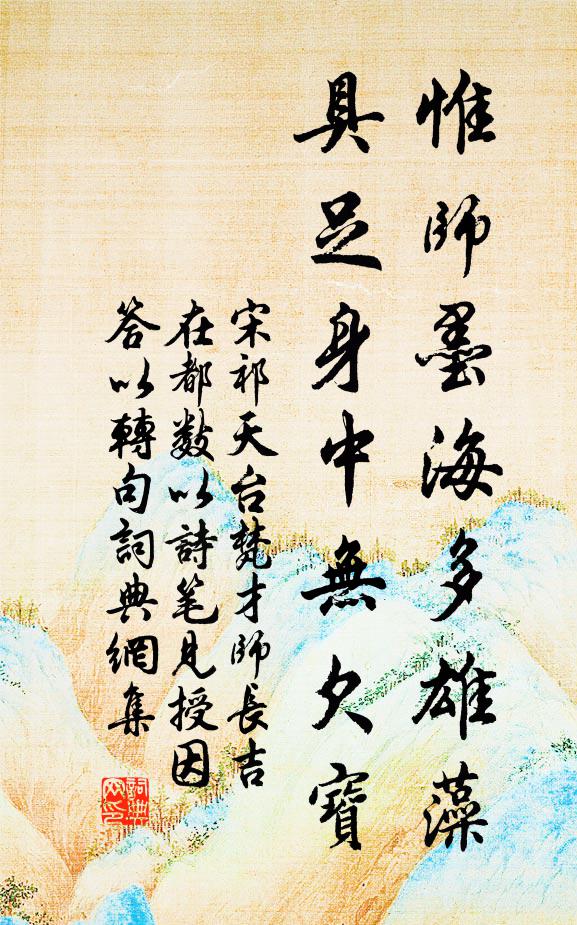 惟師墨海多雄藻
具足身中無欠寶
宋祁天台梵才師長吉
在都數以詩笔見授因
答以轉句詞典網集
詞典